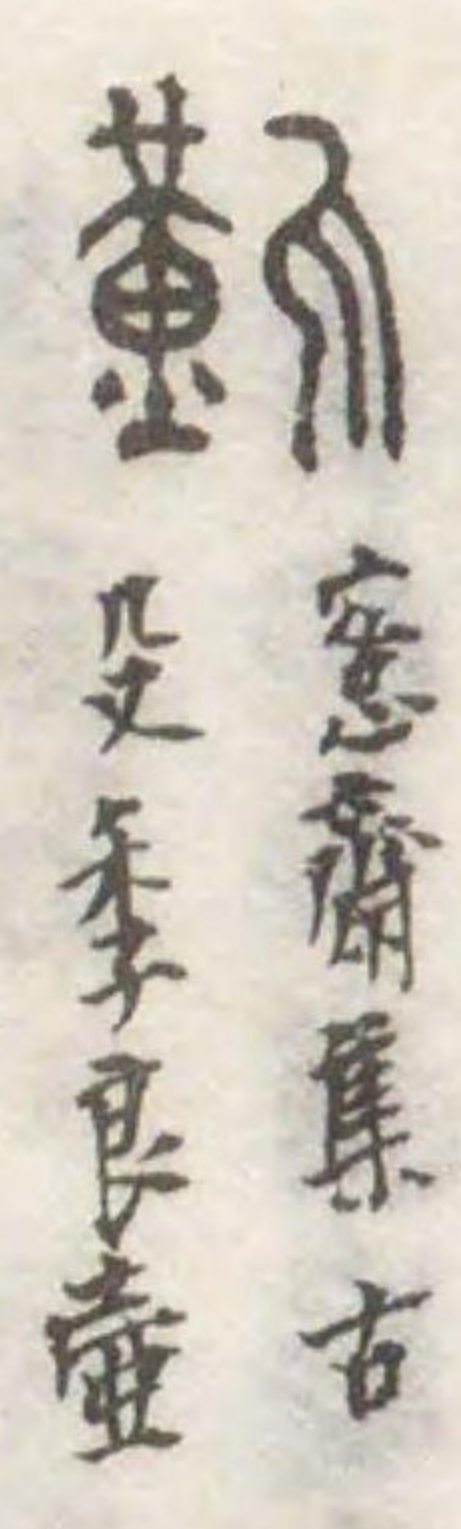 愙齋集古
殳季良壺